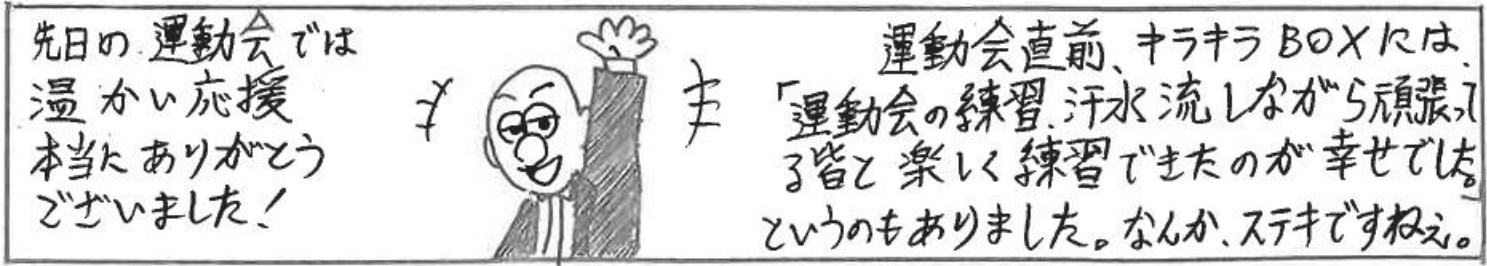 先日の運動会では
温かい応援
本当にありがとう
ございました!
運動会直前、キラキラBOXには、
「運動会の練習、汗水流しながら頑張って
る皆と楽しく練習できたのが幸せでした。」
というのもありました。なんか、ステキですねぇ。